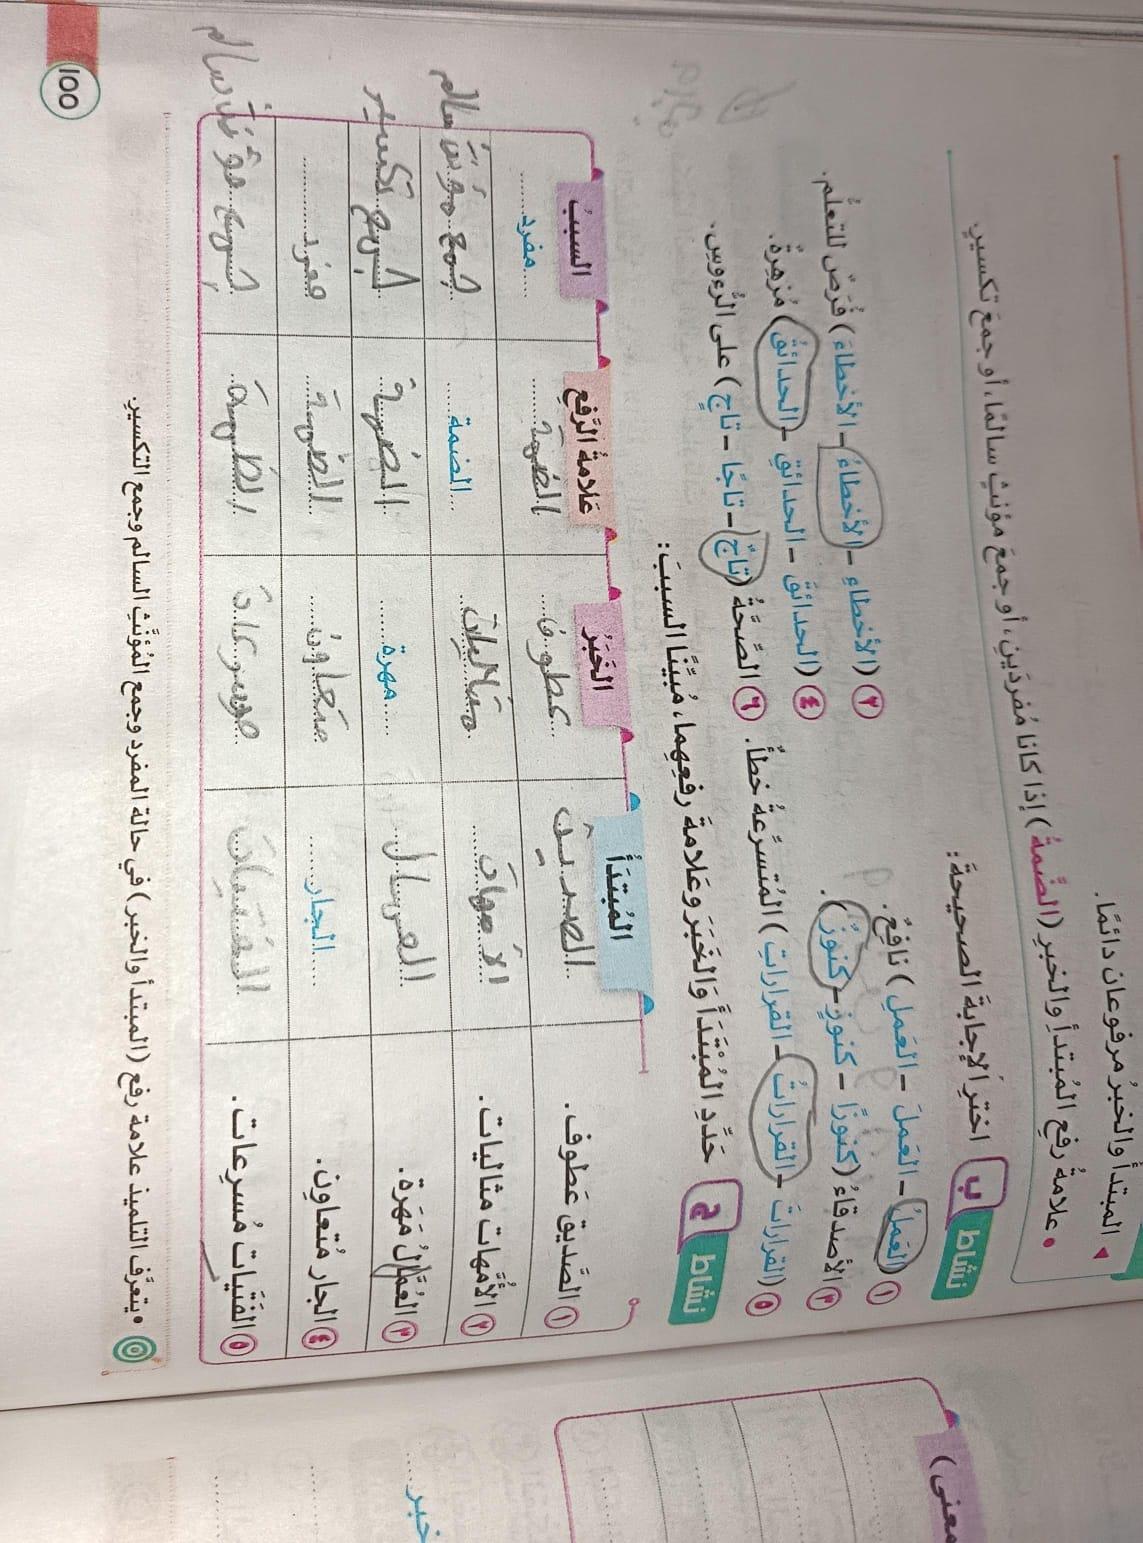 المبتدأ والخبرُ مرفوعان دائمًا.
علامةُ رفعِ المُبتدأِ والخبرِ (الضَّمةُ) إذا كانا مُفردَينِ، أو جمعَ مؤنثٍ سالمًا، أو جمعَ تكسيرٍ.
نشاط ب اخترِ الإجابةَ الصحيحةَ:
١ (العَملُ – العَملَ – العَملِ) نافِعٌ.
٢ (الأخطاءِ – الأخطاءُ – الأخطاءَ) فُرَصٌ للتعلُّمِ.
٣ الأصدقاءُ (كنوزًا – كنوزٍ – كنوزٌ).
٤ (الحدائقَ – الحدائقِ – الحدائقُ) مُزهِرةٌ.
٥ (القراراتَ – القراراتُ – القراراتِ) المُتسرِّعةُ خطأٌ.
٦ الصِّحَّةُ (تاجٌ – تاجًا – تاجٍ) على الرُّءوسِ.
نشاط ج حَدِّدِ المُبْتَدَأَ وَالخَبَرَ وعَلامةَ رفعِهِما، مُبيِّنًا السببَ:
المُبتَدَأ الخَبَرُ عَلامةُ الرَّفعِ السببُ
١ الصَّديق عَطوف. الصديق عطوف الضمة مفرد
٢ الأُمَّهات مثاليات. الأمهات مثاليات الضمة جمع مؤنث سالم
٣ العُمَّالُ مَهَرة. العمال مهرة الضمة جمع تكسير
٤ الجار مُتعاوِن. الجار متعاون الضمة مفرد
٥ الفَتَيات مُسرِعات. الفتيات مسرعات الضمة جمع مؤنث سالم
يتعرَّف التلميذ علامة رفع (المبتدأ والخبر) في حالة المفرد وجمع المُؤنَّثِ السالم وجمع التكسيرِ.
١٥٥
معنى)
خبر